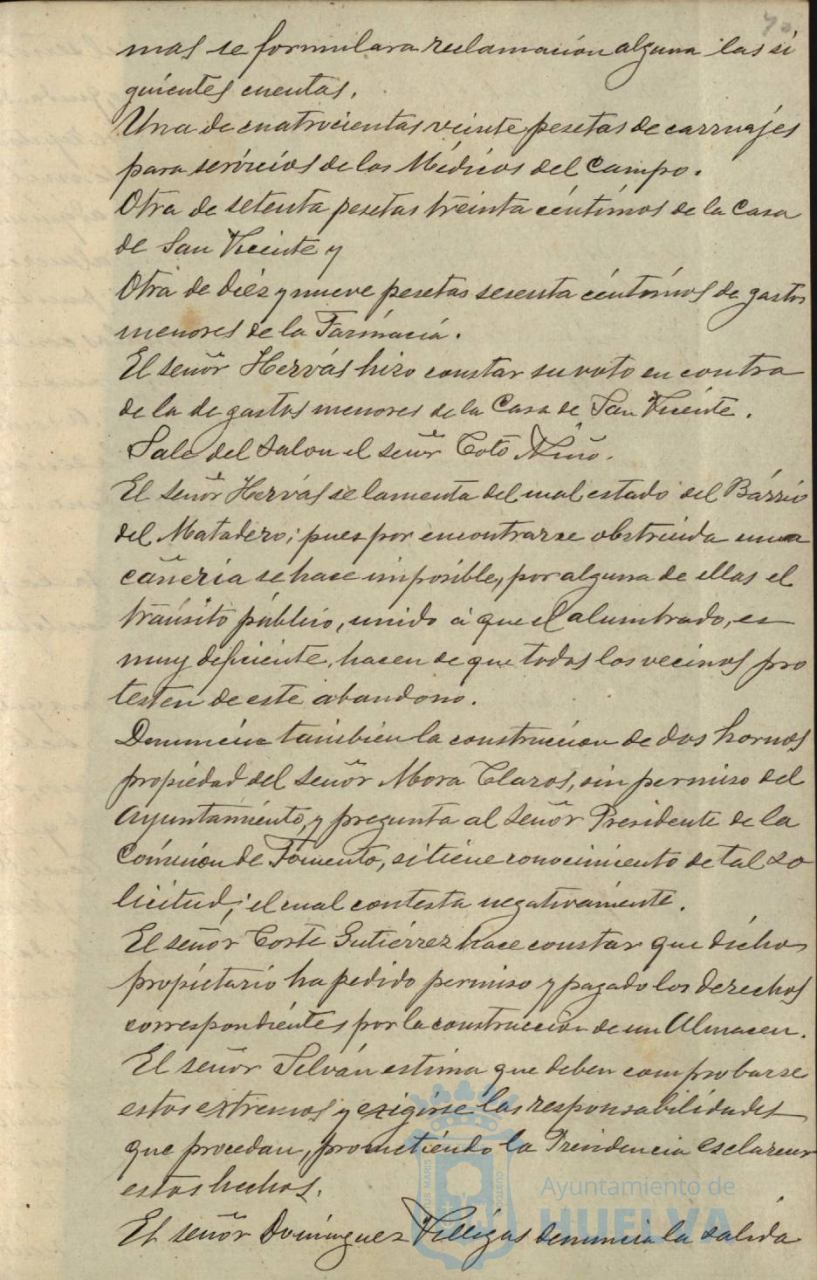 70
mas se formulara reclamación alguna las si
guientes cuentas.
Una de cuatrocientas veinte pesetas de carruajes
para servicios de los Médicos del Campo.
Otra de setenta pesetas treinta céntimos de la Casa
de San Vicente y
Otra de diéz y nueve pesetas sesenta céntimos de gastos
menores de la Farmacia.
El señor Hervás hizo constar su voto en contra
de la de gastos menores de la Casa de San Vicente.
Sale del salon el señor Coto Niño.
El señor Hervás se lamenta del mal estado del Bárrio
del Matadero; pues por encontrarse obstruida una
cañeria se hace imposible, por alguna de ellas el
tránsito público, unido á que el alumbrado, es
muy deficiente, hacen de que todos los vecinos pro
testen de este abandono.
Denuncia tambien la construccion de dos hornos
propiedad del señor Mora Claros, sin permiso del
Ayuntamiento, y pregunta al señor Presidente de la
Comision de Fomento, si tiene conocimiento de tal so
licitud; el cual contesta negativamente.
El señor Corte Gutiérrez hace constar que dicho
propietario ha pedido permiso y pagado los derechos
correspondientes por la construccion de un Almacen.
El señor Selván estima que deben comprobarse
estos extremos y exigirse las responsabilidades
que procedan, prometiendo la Presidencia esclarecer
estos hechos.
El señor Dominguez Villegas denuncia la salida
Ayuntamiento de
HUELVA